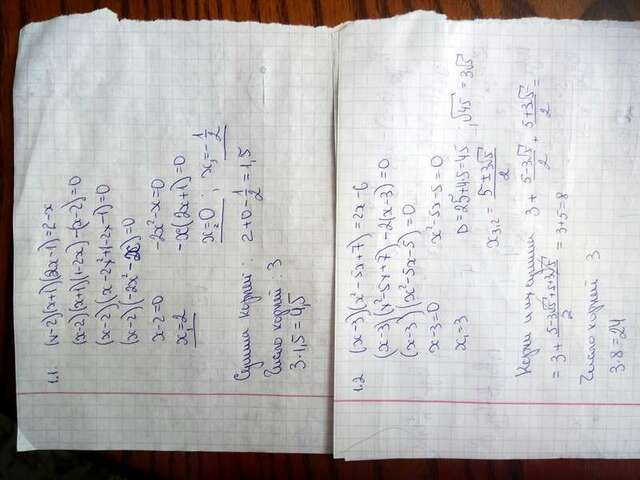 1.1 (x-2)(x+1)(2x-1)=2-x
(x-2)(x+1)(1-2x)-(x-2)=0
(x-2)(x-2x²+1-2x-1)=0
(x-2)(-2x²-x)=0
x-2=0 -2x²-x=0
x₁=2 -x(2x+1)=0
x₂=0; x₃=-1/2
Сумма корней: 2+0-1/2=1,5
Число корней: 3
3·1,5=4,5
1.2 (x-3)(x²-5x+7)=2x-6
(x-3)(x²-5x+7)-2(x-3)=0
(x-3)(x²-5x-5)=0
x-3=0 x²-5x-5=0
x₁=3 D=25+45=45; √45=3√5
x₃,₂=(5±3√5)/2
Корни и их сумма 3+(5-3√5)/2+(5+3√5)/2=
=3+(5-3√5+5+3√5)/2=3+5=8
Число корней 3
3·8=24